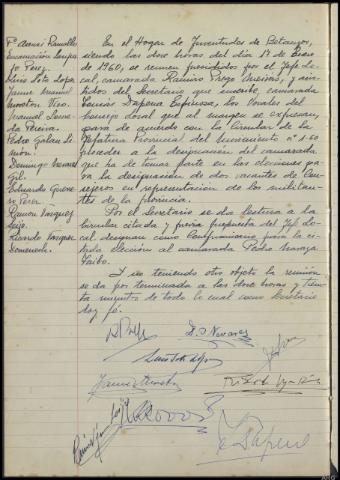 Fco Asensi
Encarnación
Pérez.
Luis Soto López
Jaime Manuel
Mosteiro Vico.
Manuel
da Pereira.
Pedro Galán Si-
món.
Domingo
Gil.
Eduardo Guerre-
ro Pérez.
Ramón Vázquez
Seijo.
Ricardo Vázquez
Domenech.
En el Hogar de Juventudes de Betanzos,
siendo las doce horas del día 17 de Enero
de 1960, se reunen presididos por el Jefe Lo-
cal, camarada Ramiro Prego Meirás, y asis-
tidos del Secretario que suscribe, camarada
Dapena Espinosa, los Vocales del
Consejo local que al margen se expresan,
para de acuerdo con la Circular de la
Jefatura Provincial del Movimiento nº 1-60
proceder a la designación del camarada
que ha de tomar parte en las elecciones pa-
ra la designación de dos vacantes de Con-
sejeros en representación de los militan-
tes de la provincia.
Por el Secretario se da lectura a la
Circular citada y previa propuesta del Jefe Lo-
cal designan como Compromisario para la ci-
tada elección al camarada Pedro
Faibo.
Y no teniendo otro objeto la reunión
se da por terminada a las doce horas y trein-
ta minutos de todo lo cual como Secretario
doy fé.